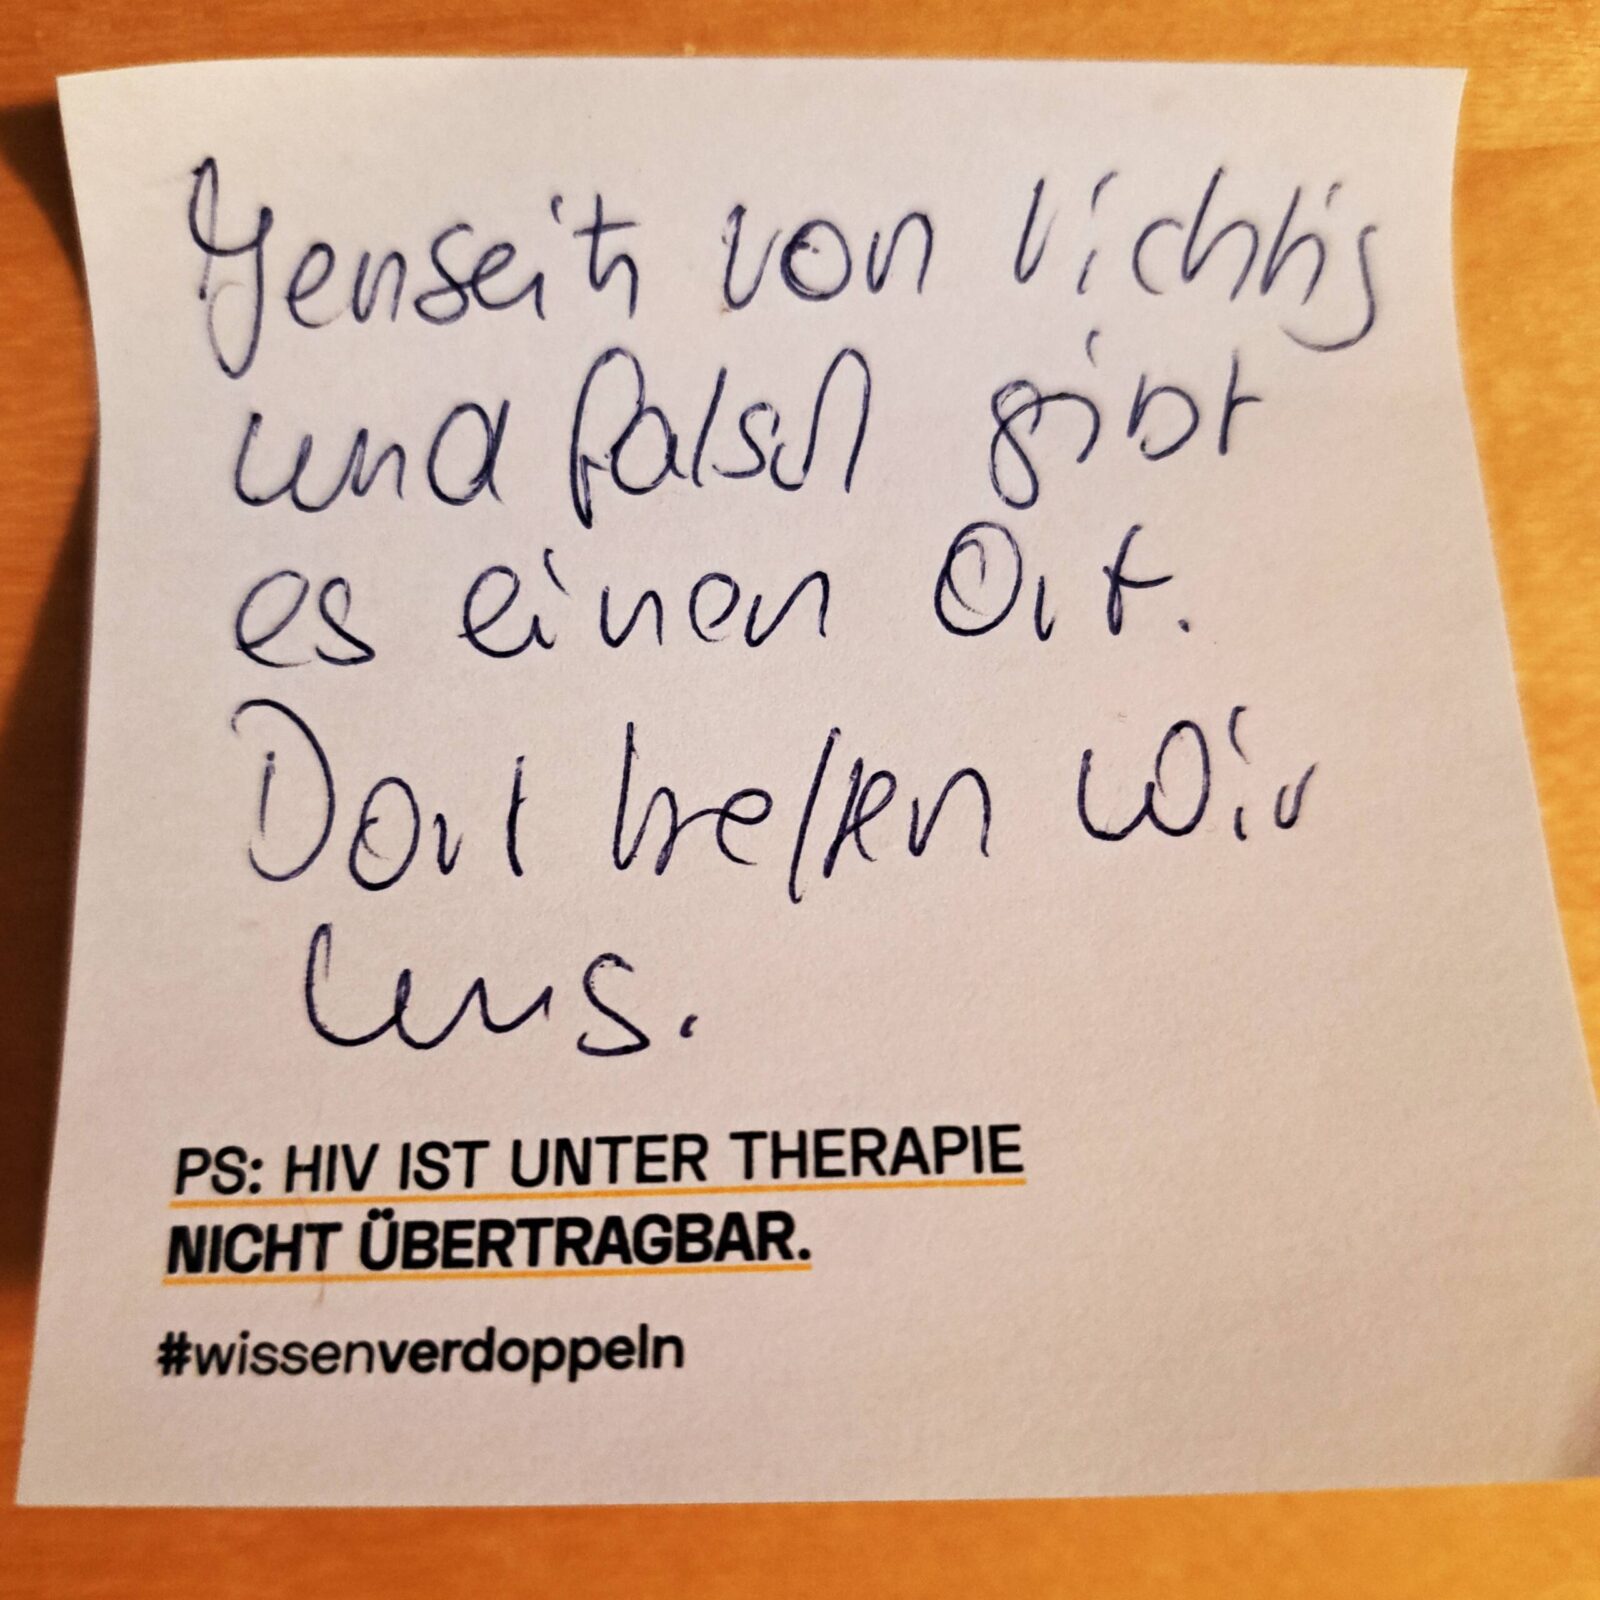 Jenseits von richtig
und falsch gibt
es einen Ort.
Dort treffen wir
uns.
PS: HIV IST UNTER THERAPIE
NICHT ÜBERTRAGBAR.
#wissenverdoppeln